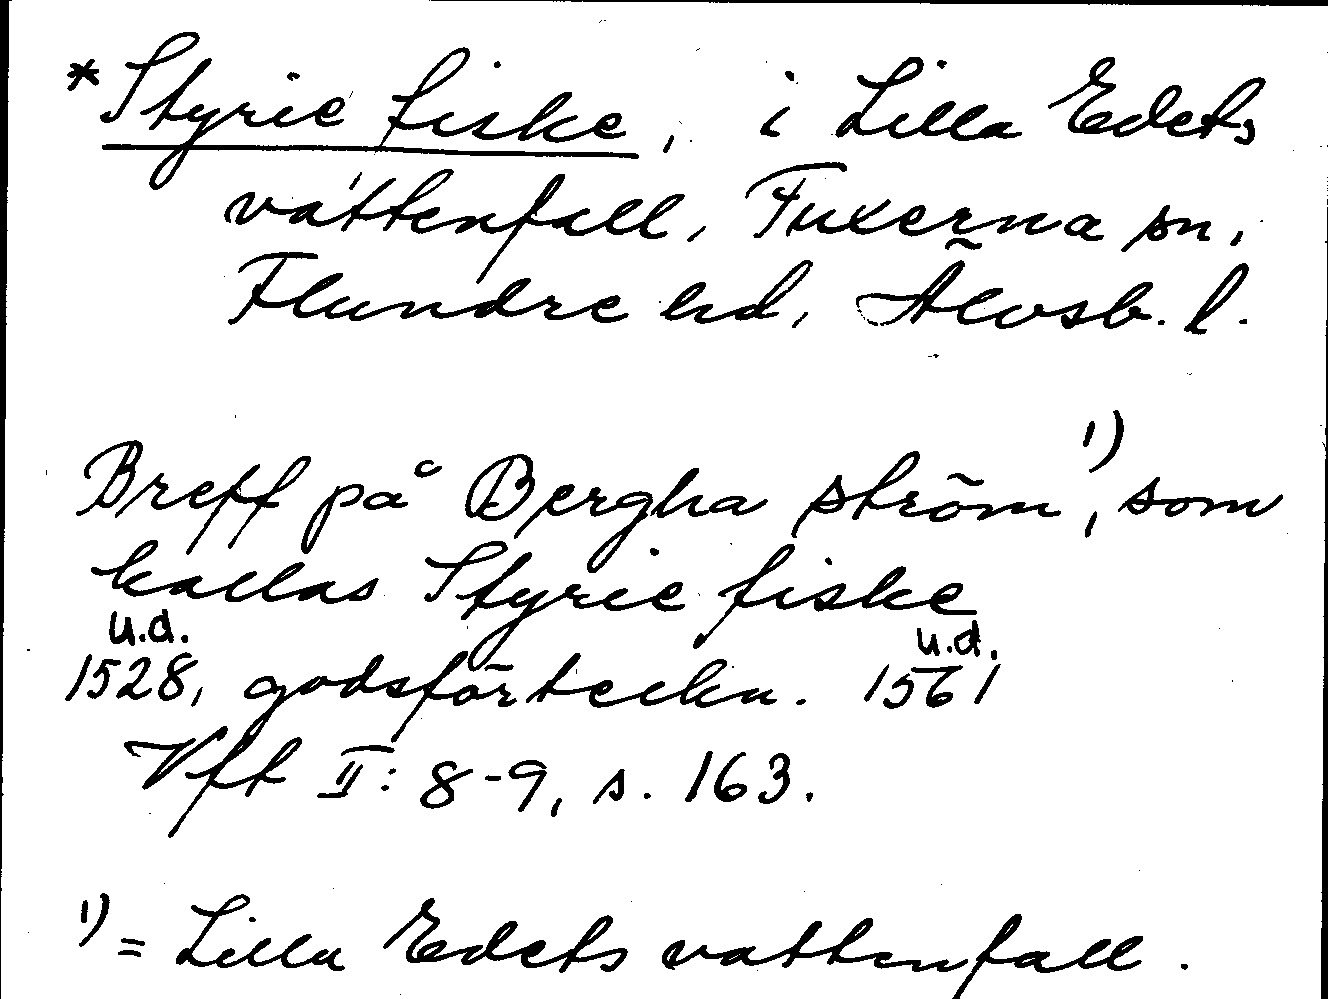 *Styrie fiske, i Lilla Edets
vattenfall, Fuxerna sn,
Flundre hd, Älvsb. l.
Breff på Bergha ström¹⁾, som
kallas Styrie fiske
u.d. u.d.
1528, godsförteckn. 1561
Vft II: 8-9, s. 163.
¹⁾ = Lilla Edets vattenfall.